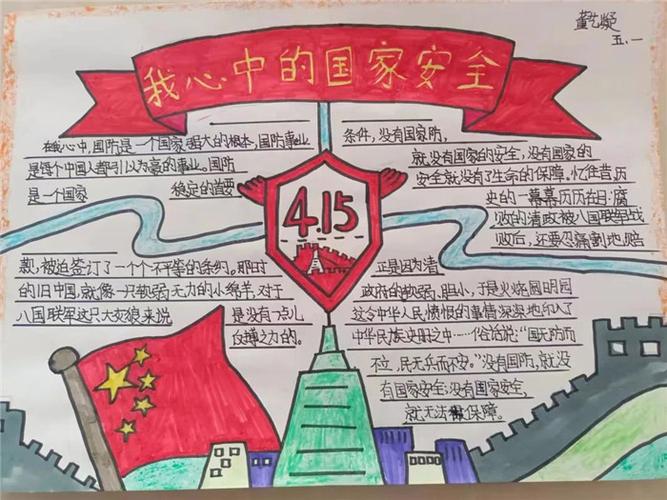 董艺凝
五.一
我心中的国家安全
在我心中,国防是一个国家强大的根本,国防事业
是每个中国人都引以为高的事业。国防
是一个国家 稳定的首要
条件,没有国家防,
就没有国家的安全,没有国家的
安全就没有了生命的保障。忆往昔历
史的一幕幕历历在目:腐
败的清政被八国联军战
败后,还要忍痛割地、赔
4.15
款,被迫签订了一个个不平等的条约。那时
的旧中国,就像一只软弱无力的小绵羊,对于
八国联军这只大灰狼来说
是没有一点儿
反搏之力的。
正是因为清
政府的软弱、胆小,于是火烧圆明园
这令中华人民愤恨的事情深深地印入了
中华民族史册之中…俗话说:“国无防而
不立,民无兵而不安。”没有国防,就没
有国家安全;没有国家安全,
就无法保障。